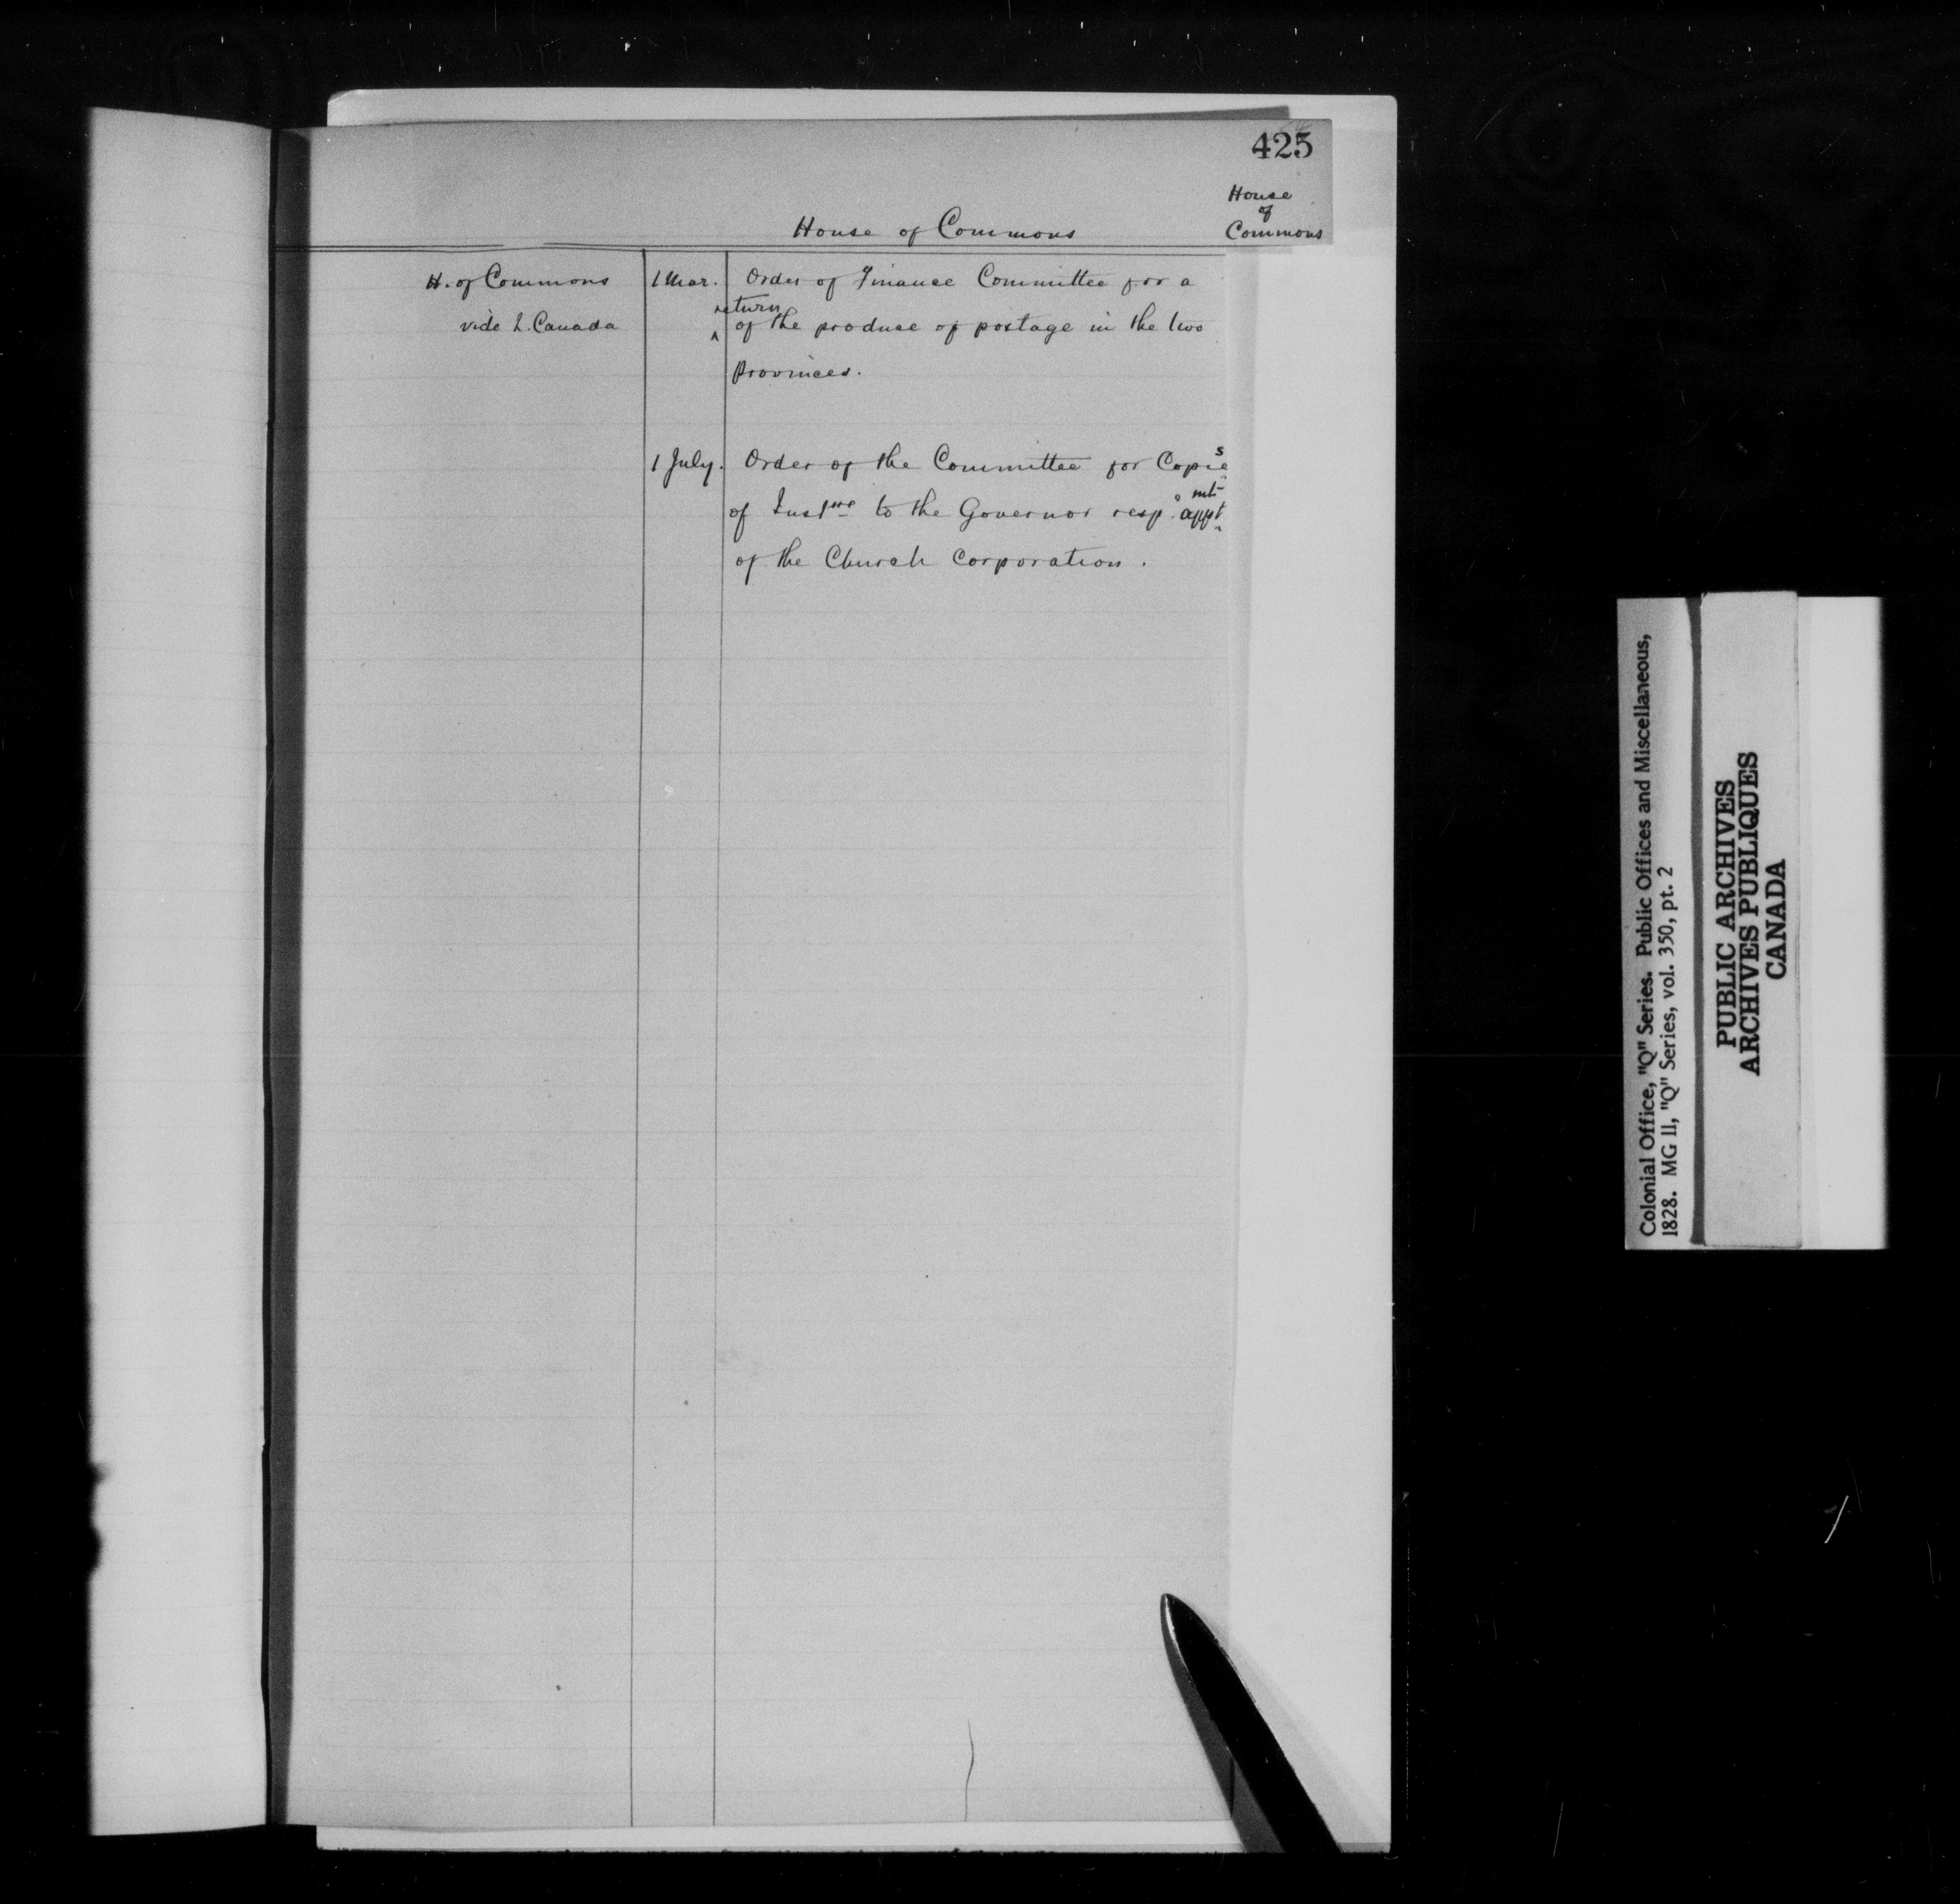 425
House
of
Commons
House of Commons
H. of Commons
vide L. Canada
1 Mar.
Order of Finance Committee for a
return
^ of the produce of postage in the two
Provinces.
1 July.
Order of the Committee for Copies
of Inst to the Governor resp. appt mt
of the Church Corporation.
Colonial Office, "Q" Series. Public Offices and Miscellaneous,
1828. MG 11, "Q" Series, vol. 350, pt. 2
PUBLIC ARCHIVES
ARCHIVES PUBLIQUES
CANADA